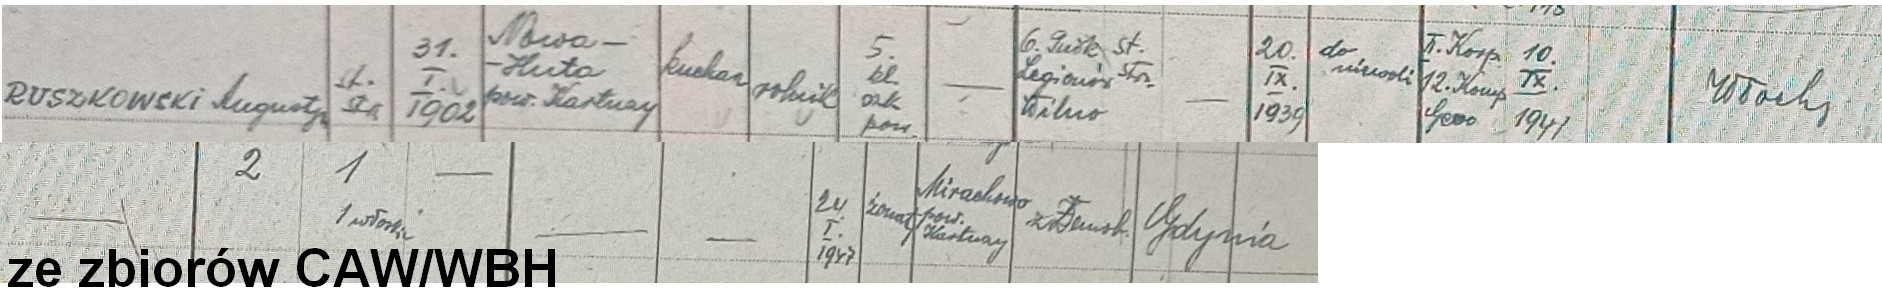 RUSZKOWSKI Augustyn
st.
str.
31.
I.
1902
Nowa-
-Huta
pow. Kartuzy
kucharz
rolnik
5.
kl.
szk
pow.
—
6. Pułk st.
Legionów str.
Wilno
—
20.
IX.
1939
do
niewoli
II. Korp 10.
12. Komp IX.
1941
Włochy
—
2
1
1 włoski
—
—
—
24.
I.
1947
żonaty
Mirachowo
pow.
Kartuzy
z Demob.
Gdynia
ze zbiorów CAW/WBH